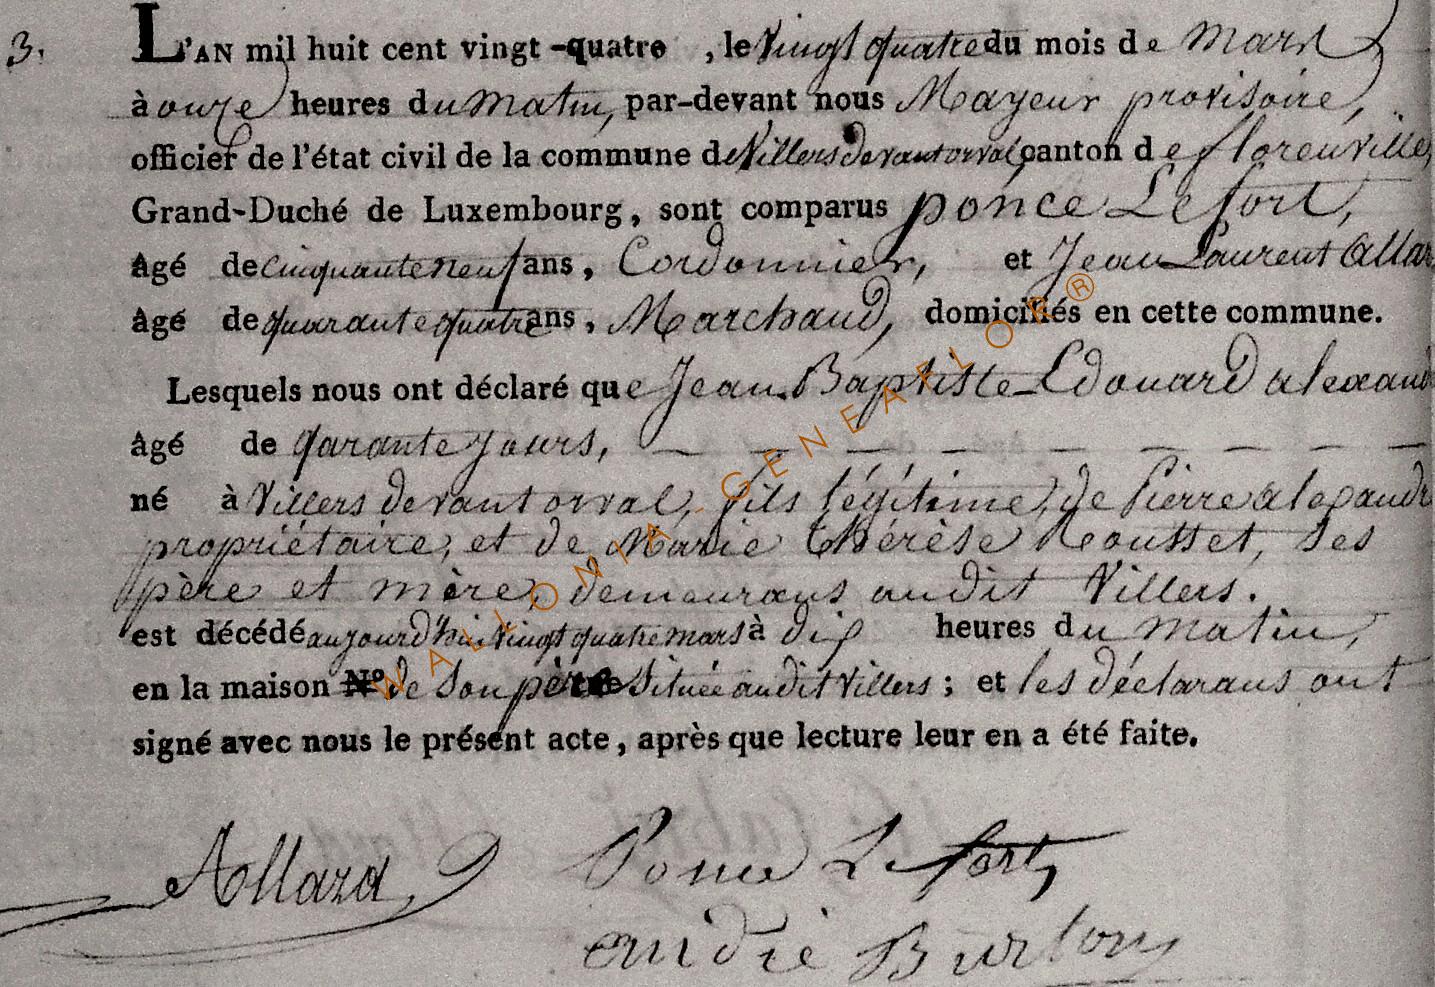 3.
L'AN mil huit cent vingt-quatre , le vingt quatre du mois de mars
à onze heures du matin, par-devant nous Mayeur provisoire,
officier de l'état civil de la commune de Villers devant orval, canton de florenville,
Grand-Duché de Luxembourg, sont comparus ponce Lefort,
âgé de cinquante neuf ans, Cordonnier, et Jean Laurent Allar
âgé de quarante quatre ans, Marchand, domiciliés en cette commune.
Lesquels nous ont déclaré que Jean Baptiste Edouard alexand
âgé de qarante jours,
né à Villers devant orval, fils légitime, de Pierre alexandre
propriétaire, et de Marie thérèse Housset, ses
père et mère, demeurans audit Villers.
est décédé aujourd'hui vingt quatre mars à dix heures du matin,
en la maison N.º de son père située audit Villers ; et les déclarans ont
signé avec nous le présent acte, après que lecture leur en a été faite.
Allard Ponce Lefort
andié Burtony
WALLONIA - GENEAFLOR ®